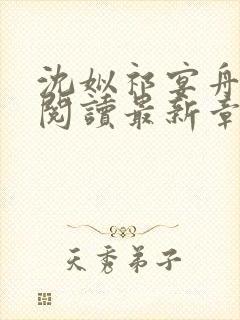 沈姒祁宴舟
閱讀最新章
天秀弟子